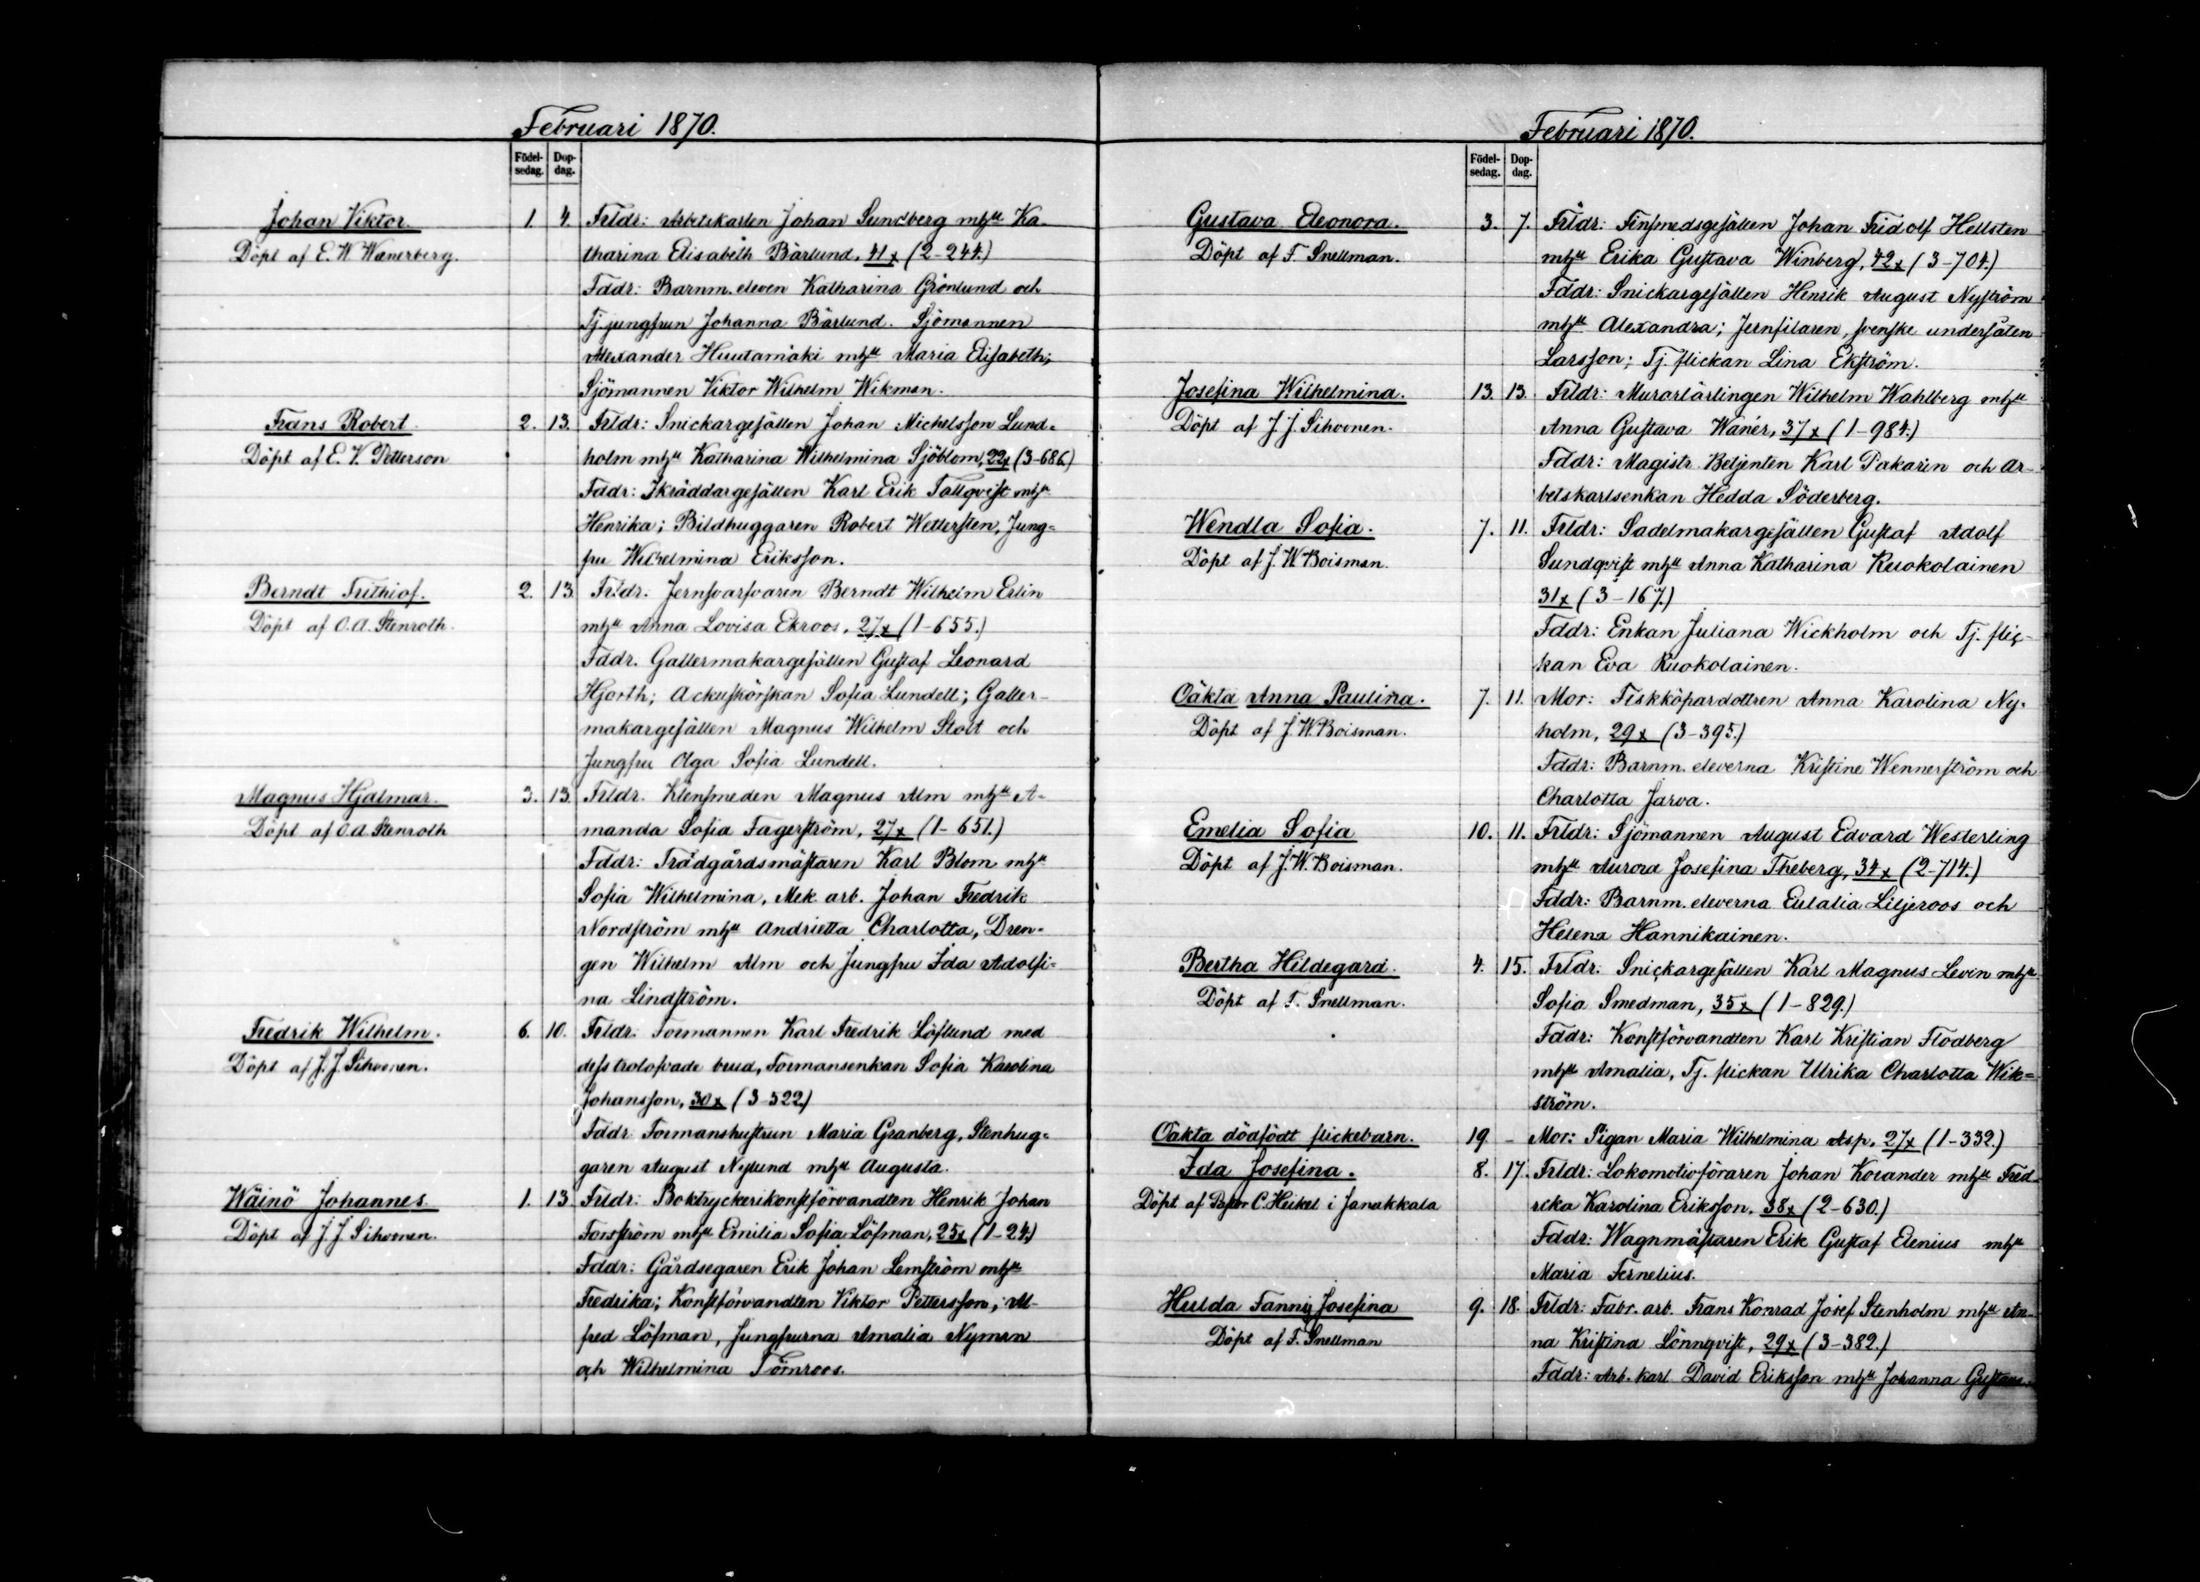 Februari 1870.
Födelsedag. Dopdag.
Johan Viktor. 1. 4. Frldr: Arbetskarlen Johan Sundberg mhu Ka-
Döpt af E. W. Wenerberg. tharina Elisabeth Bärlund, 41x (2-244.)
Fddr: Barnm. eleven Katharina Grönlund och
Tj. jungfrun Johanna Bärlund. Sjömannen
Alexander Huutamäki mhu Maria Elisabeth;
Sjömannen Viktor Wilhelm Wikman.
Frans Robert 2. 13. Frldr: Snickargesällen Johan Michelsson Lund-
Döpt af E. V. Petterson holm mhu Katharina Wilhelmina Sjöblom, 22x (3-686.)
Fddr: Skräddargesällen Karl Erik Tallqvist mhu
Henrika; Bildhuggaren Robert Wettersten, Jung-
fru Wilhelmina Eriksson.
Berndt Frithiof. 2. 13. Frldr. Jernsvarfvaren Berndt Wilhelm Erlin
Döpt af O. A. Stenroth. mhu Anna Lovisa Ekroos, 27x (1-655.)
Fddr. Gallermakargesällen Gustaf Leonard
Hjorth; Ackuskörskan Sofia Lundell; Galler-
makargesällen Magnus Wilhelm Stolt och
Jungfru Olga Sofia Lundell.
Magnus Hjalmar. 3. 13. Frldr. Klensmeden Magnus Alm mhu A-
Döpt af O. A. Stenroth manda Sofia Fagerström, 27x (1-651.)
Fddr: Trädgårdsmästaren Karl Blom mhu
Sofia Wilhelmina, Mek. arb. Johan Fredrik
Nordström mhu Andrietta Charlotta, Dren-
gen Wilhelm Alm och Jungfru Ida Adolfi-
na Lindström.
Fredrik Wilhelm. 6. 10. Frldr. Formannen Karl Fredrik Löflund med
Döpt af J. J. Sihvonen. dess trolofvade brud, Formansenkan Sofia Karolina
Johansson, 30x (3-522.)
Fddr. Formanshustrun Maria Granberg, Stenhug-
garen August Nylund mhu Augusta.
Wäinö Johannes. 1. 13. Frldr: Boktryckerikonstförvandten Henrik Johan
Döpt af J. J. Sihvonen. Forsström mhu Emilia Sofia Löfman, 25x (1-24.)
Fddr: Gårdsegaren Erik Johan Lemström mhu
Fredrika; Konstförvandten Viktor Pettersson; Al-
fred Löfman, Jungfrurna Amalia Nyman
och Wilhelmina Törnroos.
Februari 1870.
Födelsedag. Dopdag.
Gustava Eleonora. 3. 7. Frldr: Finsmedsgesällen Johan Fridolf Hellsten
Döpt af F. Snellman. mhu Erika Gustava Winberg, 42x (3-704.)
Fddr: Snickargesällen Henrik August Nyström
mhu Alexandra; Jernfilaren, svenske undersåten
Larsson; Tj. flickan Lina Ekström.
Josefina Wilhelmina. 13. 13. Frldr: Murarlärlingen Wilhelm Wahlberg mhu
Döpt af J. J. Sihvonen. Anna Gustava Wanér, 37x (1-984.)
Fddr: Magistr. Betjenten Karl Pakarin och Ar-
betskarlsenkan Hedda Söderberg.
Wendla Sofia. 7. 11. Frldr: Sadelmakargesällen Gustaf Adolf
Döpt af J. W. Boisman. Sundqvist mhu Anna Katharina Ruokolainen
31x (3-167.)
Fddr: Enkan Juliana Wickholm och Tj. flic-
kan Eva Ruokolainen.
Oäkta Anna Paulina. 7. 11. Mor: Fiskköpardottren Anna Karolina Ny-
Döpt af J. W. Boisman. holm, 29x (3-395.)
Fddr: Barnm. eleverna Kristine Wennerström och
Charlotta Jarva.
Emelia Sofia 10. 11. Frldr: Sjömannen August Edvard Westerling
Döpt af J. W. Boisman. mhu Aurora Josefina Theberg, 34x (2-714.)
Fddr: Barnm. eleverna Eulalia Liljeroos och
Helena Hannikainen.
Bertha Hildegard. 4. 15. Frldr. Snickargesällen Karl Magnus Levin mhu
Döpt af F. Snellman. Sofia Smedman, 35x (1-829.)
Fddr: Konstförvandten Karl Kristian Flodberg
mhu Amalia, Tj. flickan Ulrika Charlotta Wik-
ström.
Oäkta dödfödt flickebarn. 19 - Mor: Pigan Maria Wilhelmina Asp, 27x (1-332.)
Ida Josefina. 8. 17. Frldr: Lokomotivföraren Johan Korander mhu Fred-
Döpt af Pastor C. Heikel i Janakkala rika Karolina Eriksson, 38x (2-630.)
Fddr: Wagnmästaren Erik Gustaf Elenius mhu
Maria Fernelius.
Hulda Fanny Josefina 9. 18. Frldr: Fabr. arb. Frans Konrad Josef Stenholm mhu An-
Döpt af F. Snellman na Kristina Lönnqvist, 29x (3-382.)
Fddr: Arb. karl David Eriksson mhu Johanna Gustava.